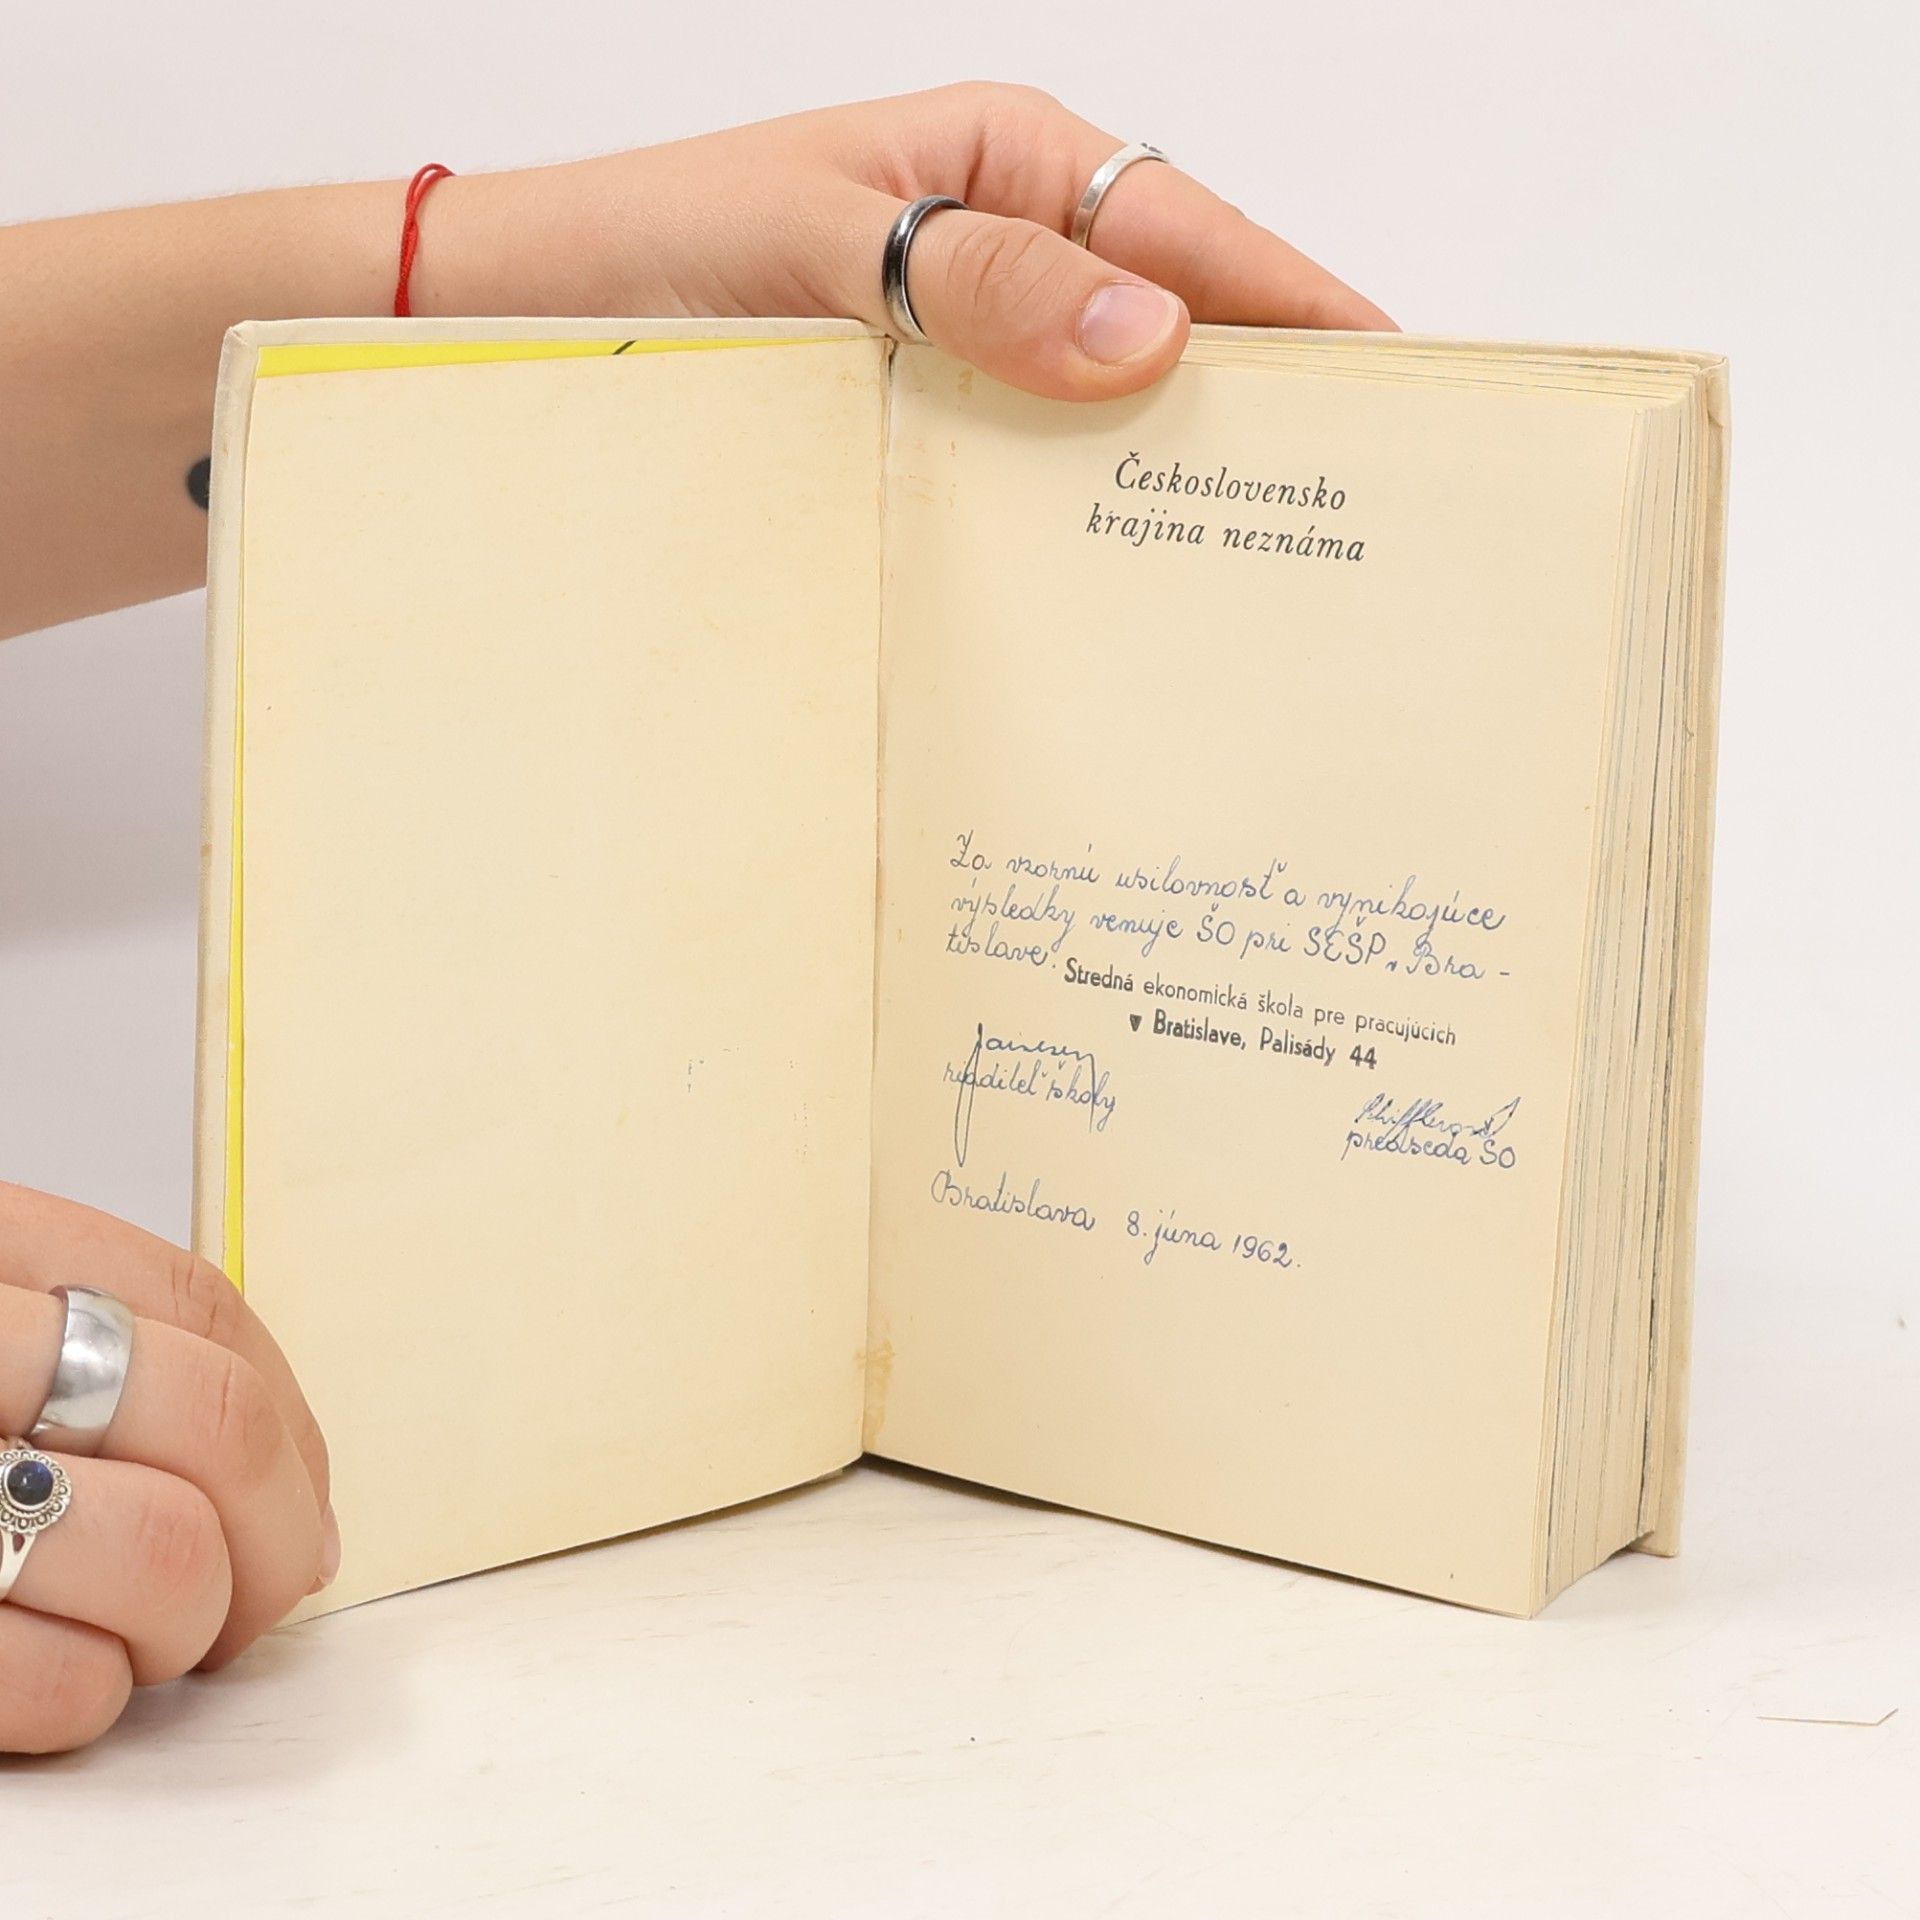 Československo
krajina neznáma
Za vzornú usilovnosť a vynikajúce
výsledky venuje ŠO pri SEŠP v Bra-
tislave.
Stredná ekonomická škola pre pracujúcich
v Bratislave, Palisády 44
riaditeľ školy
predseda ŠO
Bratislava 8. júna 1962.